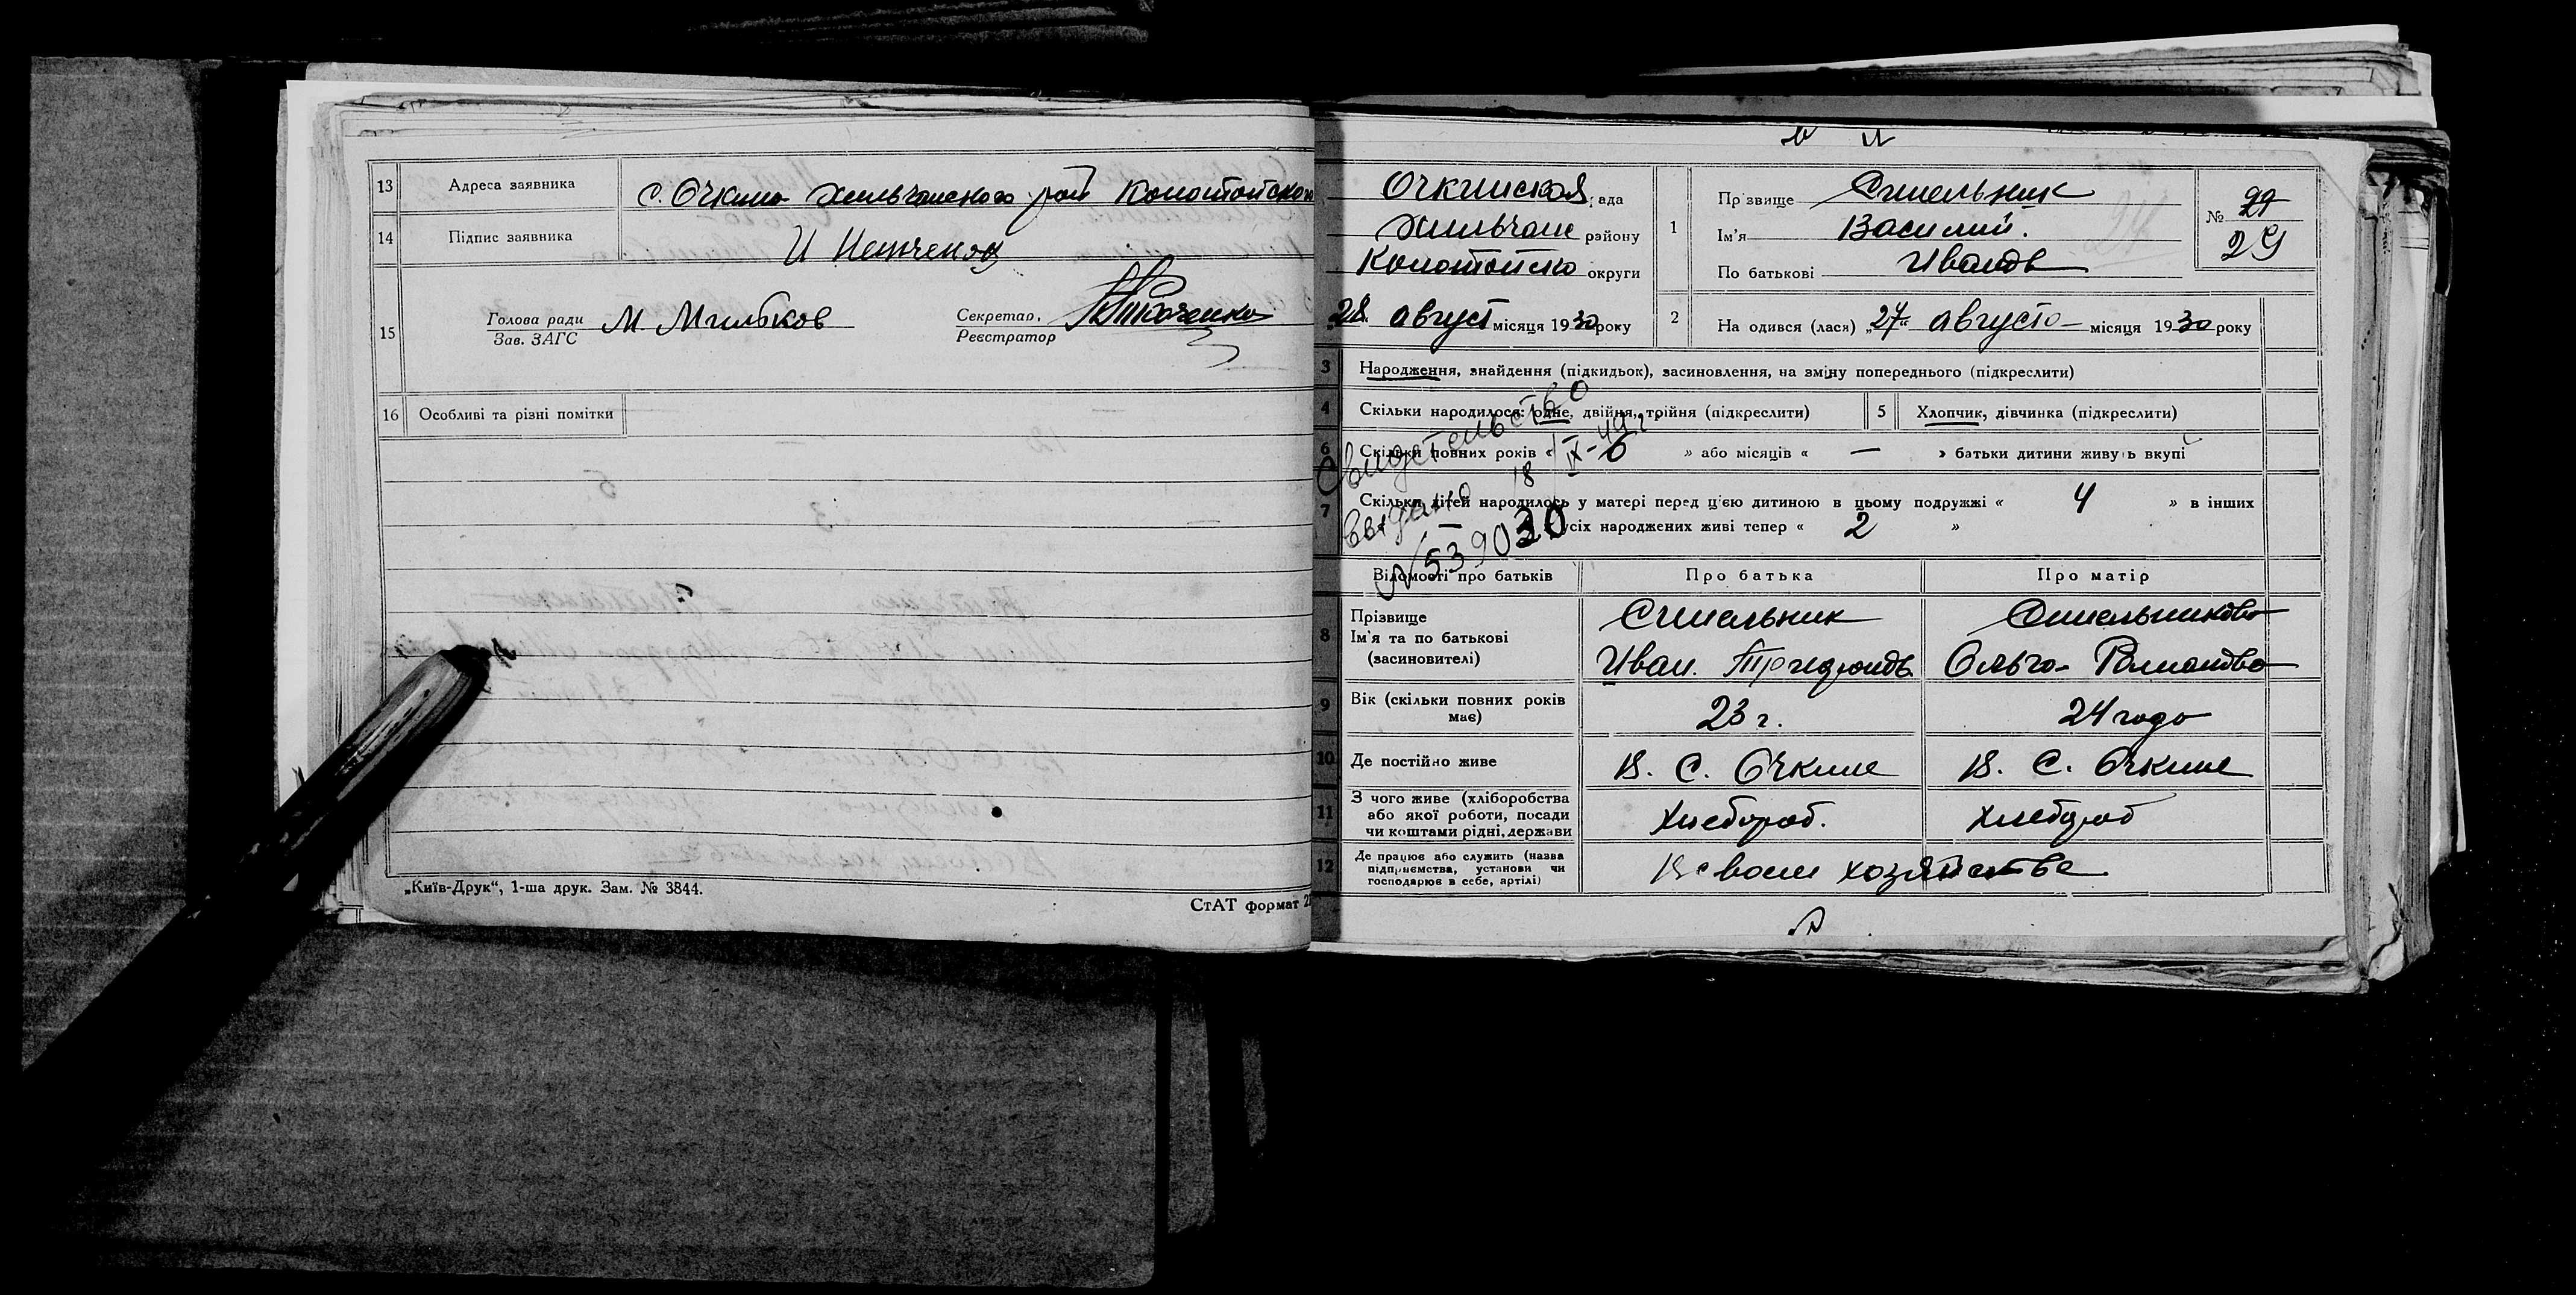 13 Адреса заявника с. Очкино Хильчанского рай Конотопского
14 Підпис заявника
15 Голова ради
Зав. ЗАГС
Секретар,
Реєстратор
16 Особливі та різні помітки
„Київ-Друк“, 1-ша друк. Зам. № 3844.
СтАТ формат
Очкинская рада
Хильчан району
Конотопско округи
28 август місяця 1930 року
1 Прізвище Синельник
Ім'я Василий.
По батькові Иванов
№ 29
29
2 На одився (лася) „27“ августа місяця 1930 року
3 Народження, знайдення (підкидьок), засиновлення, на зміну попереднього (підкреслити)
4 Скільки народилося: одне, двійня, трійня (підкреслити)
5 Хлопчик, дівчинка (підкреслити)
6 Скільки повних років « 6 » або місяців « — » батьки дитини живуть вкупі
7 Скільки дітей народилось у матері перед цією дитиною в цьому подружжі « 4 » в інших
« — » усіх народжених живі тепер « 2 »
Свидетельство
выдано 18/IX-49г
№ 539030
Відомості про батьків Про батька Про матір
8 Прізвище
Ім'я та по батькові
(засиновителі)
Синельник Синельникова
Иван. Ольга Романова
9 Вік (скільки повних років має) 23 г. 24 года
10 Де постійно живе В. С. Очкине В. С. Очкине
11 З чого живе (хліборобства
або якої роботи, посади
чи коштами рідні, держави
Хлебороб. Хлебороб
12 Де працює або служить (назва
підприємства, установи чи
господарює в себе, артілі)
В своем хозяйстве